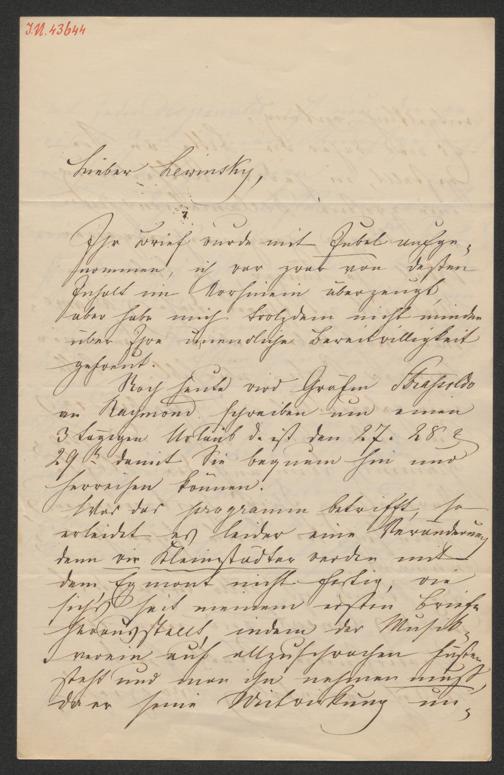 J.N. 43644
Lieber Lewinsky,
Ihr Brief wurde mit Jubel aufge-
nommen, ich war zwar von dessen
Inhalt im Vorhinein überzeugt,
aber habe mich trotzdem nicht minder
über Ihre unendliche Bereitwilligkeit
gefreut.
Noch heute wird Gräfin Strasoldo
an Raymond schreiben um einen
3 tägigen Urlaub d. ist den 27. 28
29ten damit Sie bequem hin und
herreisen können.
Was das Programm betrifft, so
erleidet es leider eine Veränderung
denn wir Kleinstädter werden mit
dem Egmont nicht fertig, wie
sich's seit meinem ersten Briefe
herausstellt, indem der Musik-
verein auf allzuschwachen Füßen
steht und man ihn nehmen muß,
da er seine Mitwirkung un-